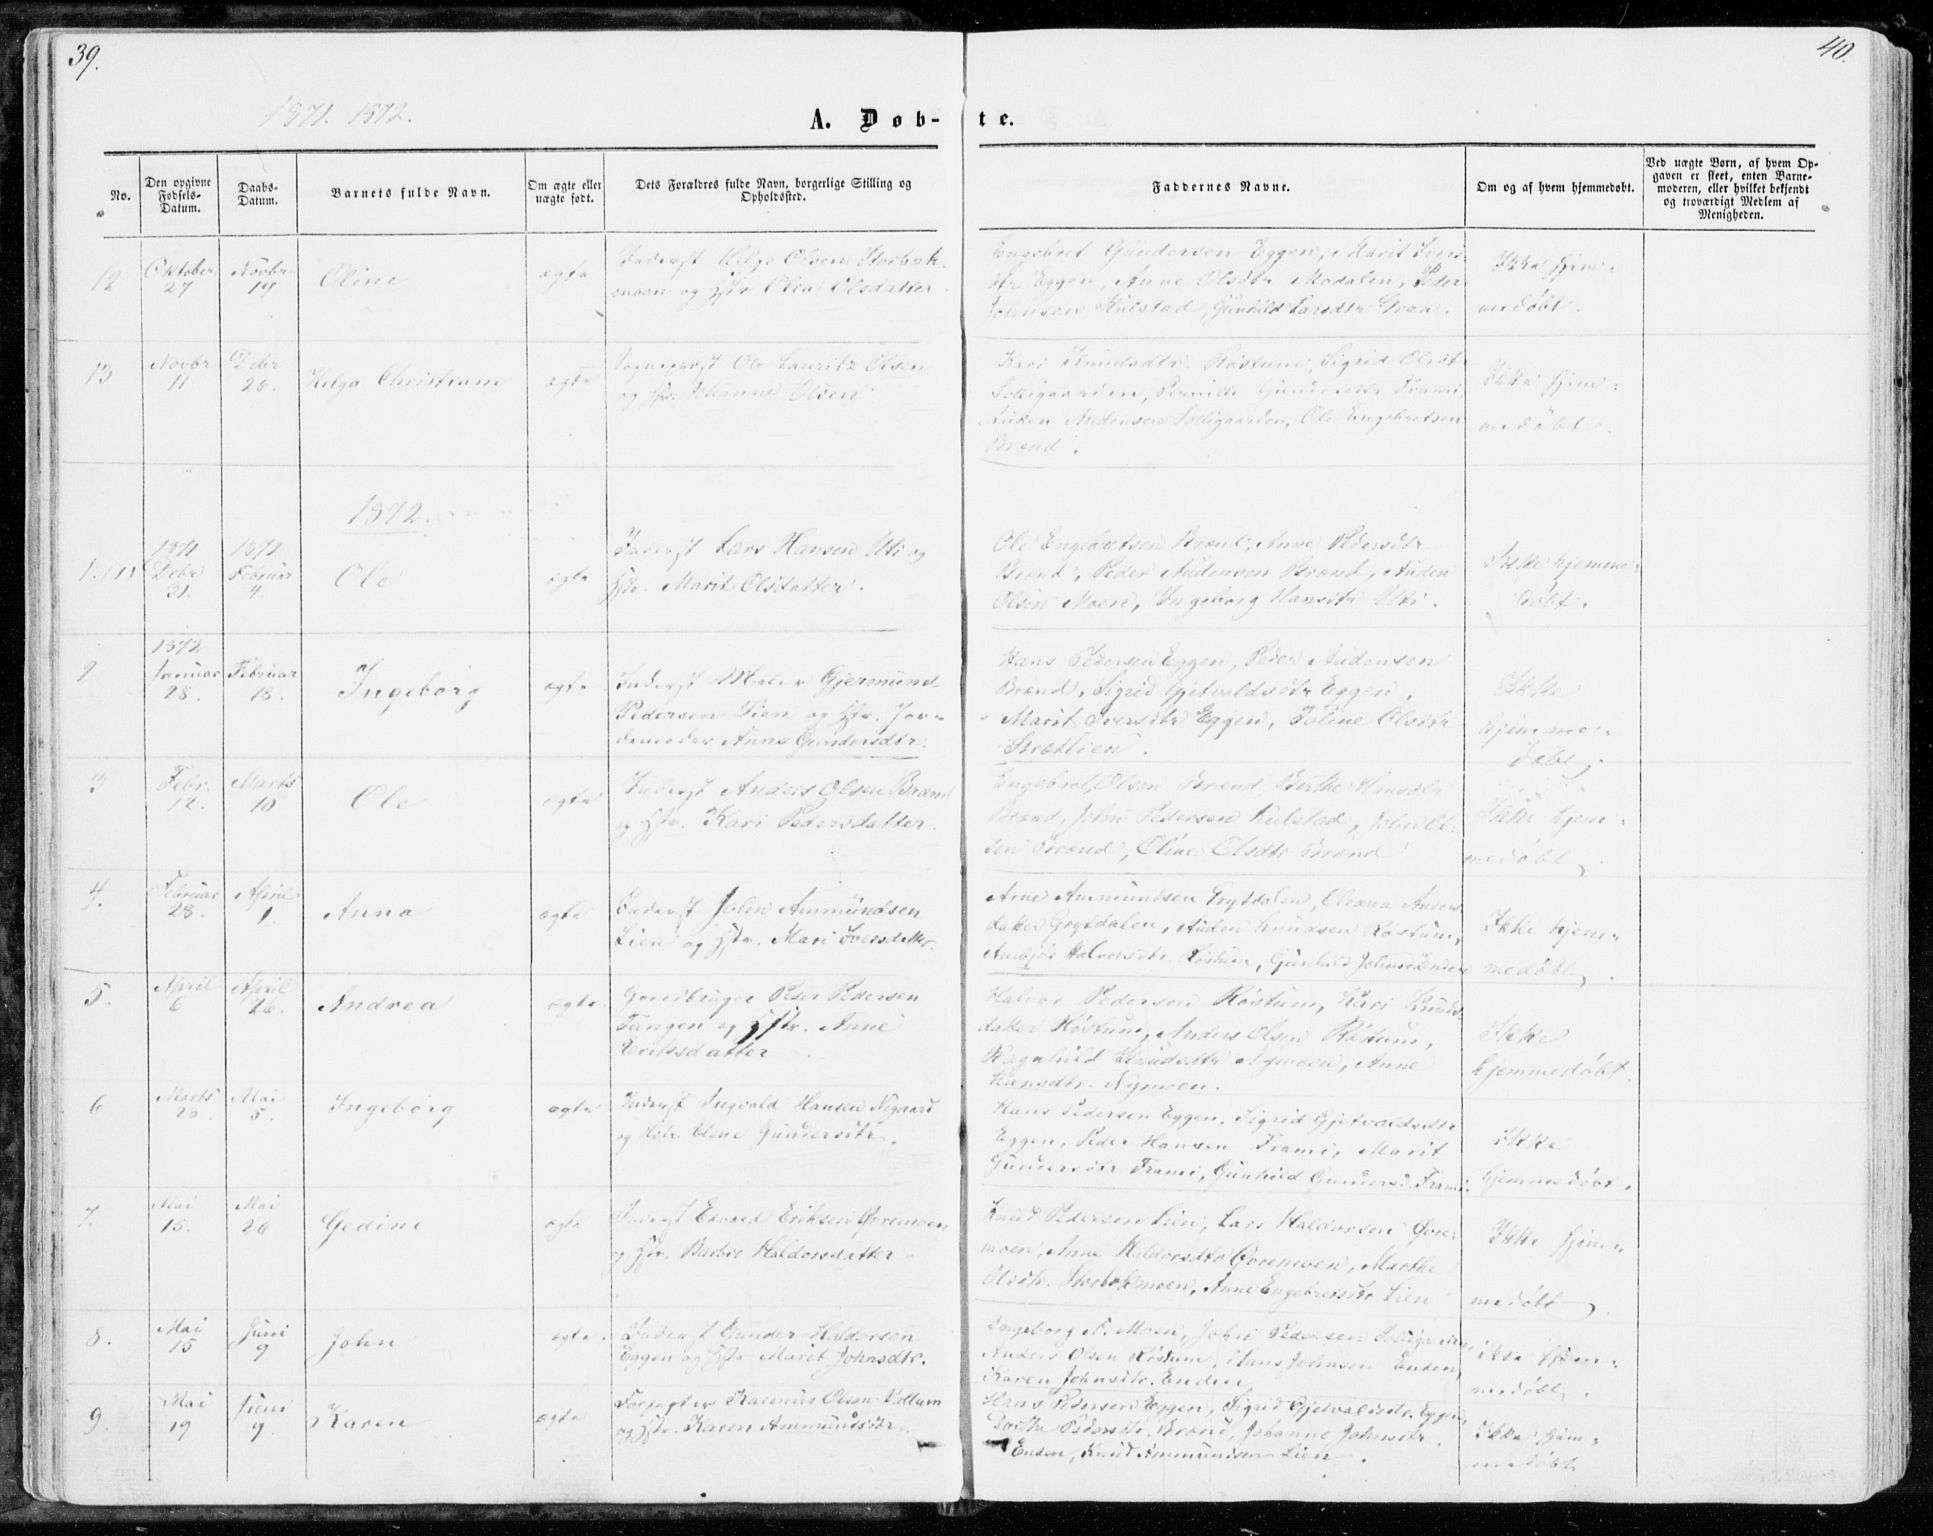 39.
40.
1871. 1872.
A. Døb-
te.
No.
Den opgivne
Fødsels-
Datum.
Daabs-
Datum.
Barnets fulde Navn.
Om ægte eller
uægte født.
Dets Forældres fulde Navn, borgerlige Stilling og
Opholdssted.
Faddernes Navne.
Om og af hvem hjemmedøbt.
Ved uægte Børn, af hvem Op-
gaven er skeet, enten Barne-
moderen, eller hvilket bekjendt
og troværdigt Medlem af
Menigheden.
12
Oktober
27
Novbr
19
Oline
ægte
Inderst Helge Olsen Storbæk-
moen og Hstr Olea Olsdatter
Engebret Gundersen Eggen, Marit Ivers
dtr Eggen, Anne Olsdtr Modalen, Peder
Johnsen Kulstad, Gunhild Larsdtr
Ikke hjem-
medøbt.
13
Novbr
11
Debr
26.
Helga Christiane
ægte
Sogneprest Ole Lauritz Olsen
og Hstr. Johanne Olsen
Kari Knudsdtr. Røstum, Sigrid Olsdtr
Solligaarden, Pernille Gundersdtr Trami,
Auden Audensen Solligaarden, Ole Engebretsen
Brænd.
Ikke hjem-
medøbt.
1872.
1. (1)
1871
Debr
31.
1872
Februar
4.
Ole
ægte
Inderst Lars Hansen Uti og
Hstr. Marit Olsdatter.
Ole Engebretsen Brænd, Anne Pedersdtr
Brænd, Peder Audensen Brænd, Auden
Olsen Moen, Ingeborg Hansdtr Uti.
Ikke hjemme-
døbt.
2
1872
Januar
28.
Februar
18.
Ingeborg
ægte
Inderst Maler Gjermund
Pedersen Lien og Hstr. Jor-
demoder Anne Gundersdtr.
Hans Pedersen Eggen, Peder Audensen
Brænd, Sigrid Gjetvaldsdtr Eggen,
Marit Iversdtr Eggen, Toline Olsdtr
Ikke
hjemme-
døbt,
3
Febr.
12.
Marts
10
Ole
ægte
Inderst Anders Olsen Brænd
og Hstr. Kari Pedersdatter.
Engebret Olsen Brænd, Berthe Hansdtr
Brænd, John Pedersen Kulstad, John Ol-
sen Brænd, Oline Olsdtr Brænd
Ikke hjem-
medøbt,
4.
Februar
28.
April
1.
Anna
ægte
Inderst John Ammundsen
Lien og Hstr. Mari Iversdatter.
Arne Ammundsen Grytdalen, Oleana Anders-
datter Grytdalen, Auden Knudsen Røstum,
Halvorsdtr. Røstum, Gunhild
Ikke hjem-
medøbt,
5.
April
6
April
26.
Andrea
ægte.
Gaardbruger Peder Pedersen
Tangen og Hstr. Anne
Eriksdatter
Halvor Pedersen Røstum, Kari Knuds-
datter Røstum, Anders Olsen Røstum,
Ragnhild Knudsdtr Nymoen, Anne
Hansdtr. Nymoen.
Ikke
hjemmedøbt.
6
Marts
28
Mai
5.
Ingeborg
ægte
Inderst Ingvald Hansen Nygaard
og Hstr. Olene Gundersdtr.
Hans Pedersen Eggen, Sigrid Gjetvaldsdtr
Eggen, Peder Hansen Trami, Marit
Gundersdtr Trami, Gunhild Gundersd. Trami.
Ikke
hjemmedøbt.
7.
Mai
15.
Mai
26
Gedine
ægte
Inderst Edvard Eriksen Øvremoen
og Hstr. Barbro Haldorsdatter
Knud Pedersen Lien, Lars Haldorsen Øvre-
moen, Anne Haldorsdtr Øvremoen, Marthe
Olsdtr. Storbækmoen, Anne Engebretsdtr Lien
Ikke hjem-
medøbt,
8.
Mai
15
Juni
9
John
ægte.
Inderst Gunder Haldorsen
Eggen og Hstr Marit Johnsdtr.
Ingeborg P. Moen, John Pedersen Solligaarden,
Anders Olsen Røstum, Hans Johnsen Enden,
Karen Johnsdtr. Enden
Ikke hjem-
medøbt.
9.
Mai
19
Juni
9
Karen
ægte
Forpagter Rasmus Olsen Vollum
og Hstr. Karen Ammundsdtr.
Hans Pedersen Eggen, Sigrid Gjetvaldsdtr. Eggen,
Dorthe Pedersdtr. Brænd, Johanne Johnsdtr.
Enden, Knud Ammundsen Lien.
Ikke hjem-
medøbt